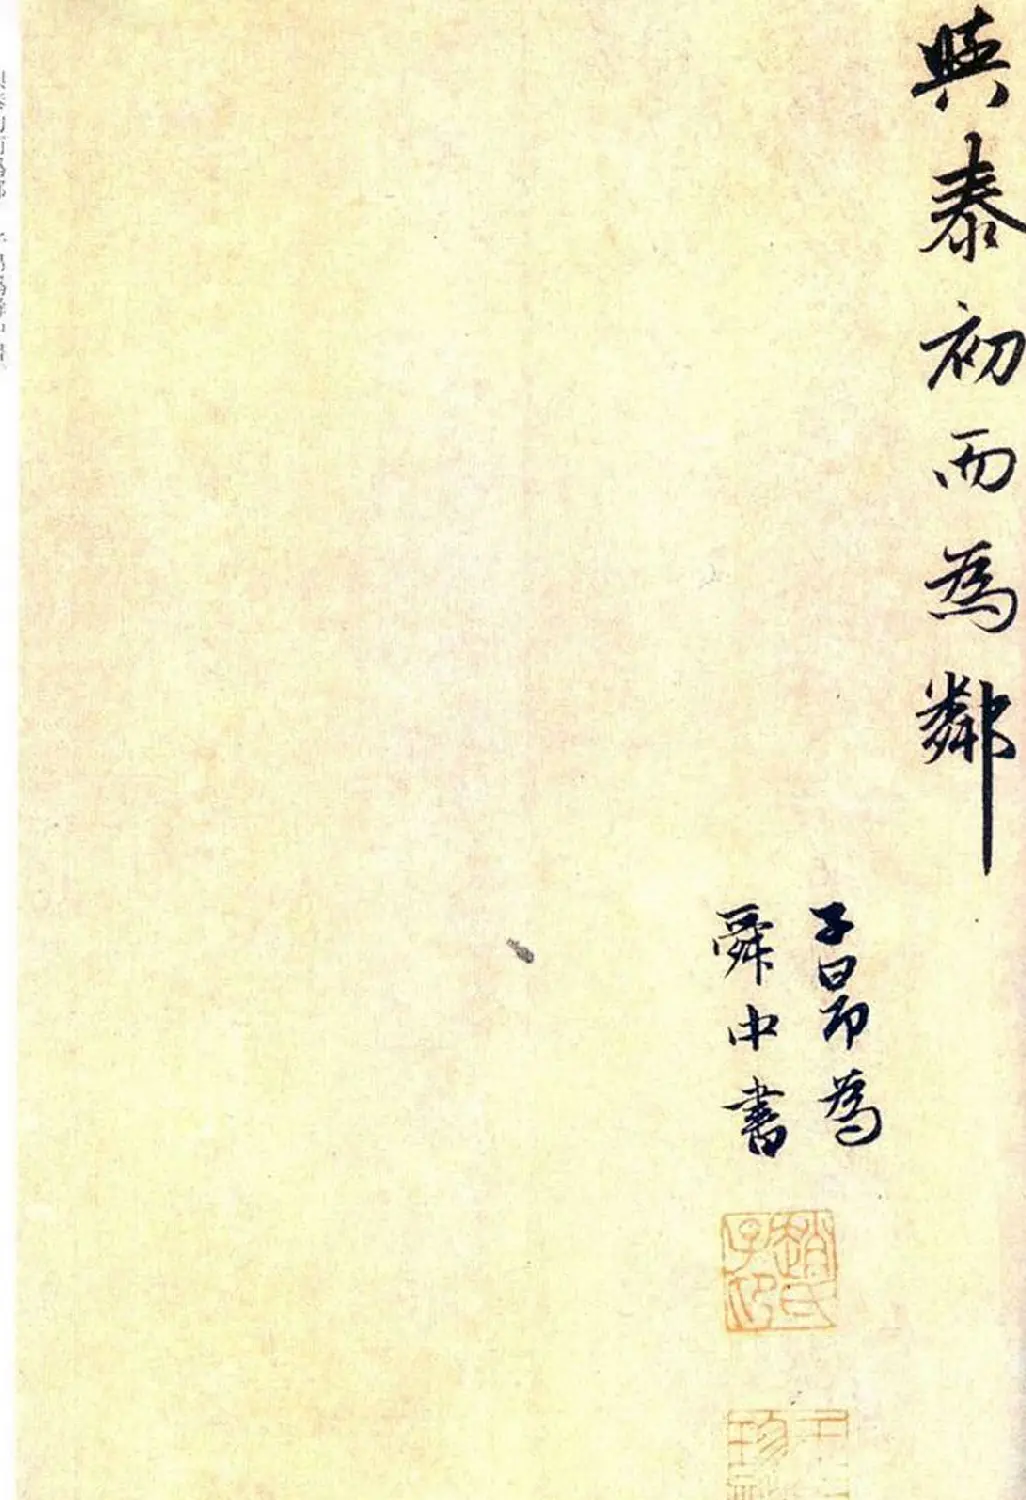 與泰初而為鄰
子昂為
舜中書
趙氏子印